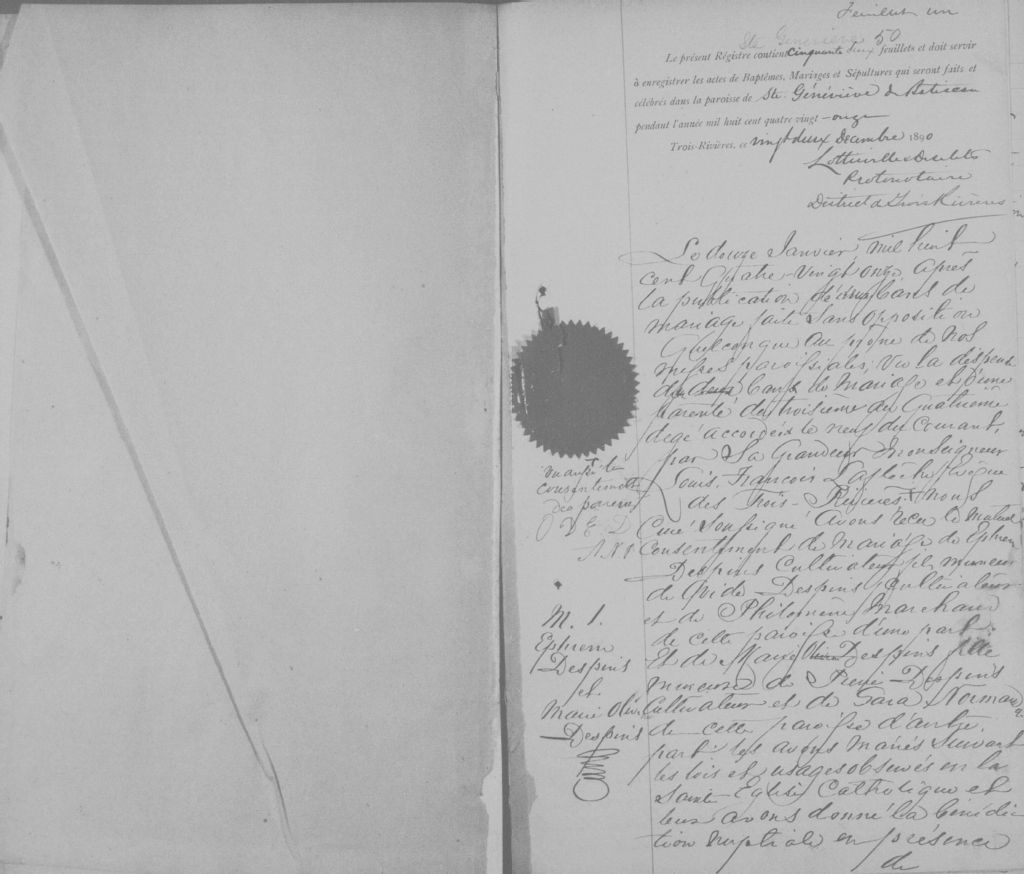 Feuillet un
Ste Geneviève 50
Le présent Régistre contient cinquante deux feuillets et doit servir
à enregistrer les actes de Baptêmes, Mariages et Sépultures qui seront faits et
célébrés dans la paroisse de Ste. Généviève de Batiscan
pendant l'année mil huit cent quatre vingt-onze
Trois-Rivières, ce vingt deux Decembre 1890
Protonotaire
District de Trois Rivières
Le douze Janvier mil huit
cent Quatre-vingt onze après
la publication bans de
mariage faite sans opposition
Quelconque au prône de nos
messes paroissiales; vu la dispense
de deux bans de Mariage et d'une
parenté du troisième au Quatrième
degé accordées le neuf du courant,
par Sa Grandeur Monseigneur
Louis, François Laflèche Evêque
des Trois-Rivières; nous
Curé soussigné avons recu le mutuel
Consentement de Mariage de Ephrem
Despins Cultivateur fils mineur
de Ovide Despins Cultivateur
et de Philomène Marchand
de cette paroisse d'une part;
Et de Marie Olivine Despins fille
mineure de Pierre Despins
Cultivateur et de Sara Normand
de cette paroisse d'autre
part les avons mariés suivant
les lois et usages observés en la
Sainte Eglise Catholique et
leur avons donné la bénédic
tion nuptiale en présence
de
vu aussi le
consentement
des parents
M. 1.
Ephrem
Despins
et
Marie
Despins